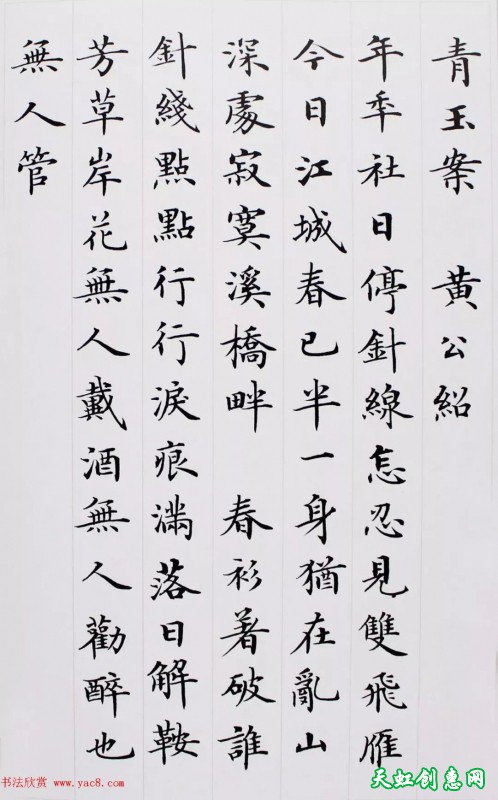 青玉案 黄公紹
年年社日停針線怎忍見雙飛雁
今日江城春已半一身猶在亂山
深處寂寞溪橋畔 春衫著破誰
針綫點點行行淚痕滿落日解鞍
芳草岸花無人戴酒無人勸醉也
無人管
书法欣赏 www.yac8.com
天虹创惠网